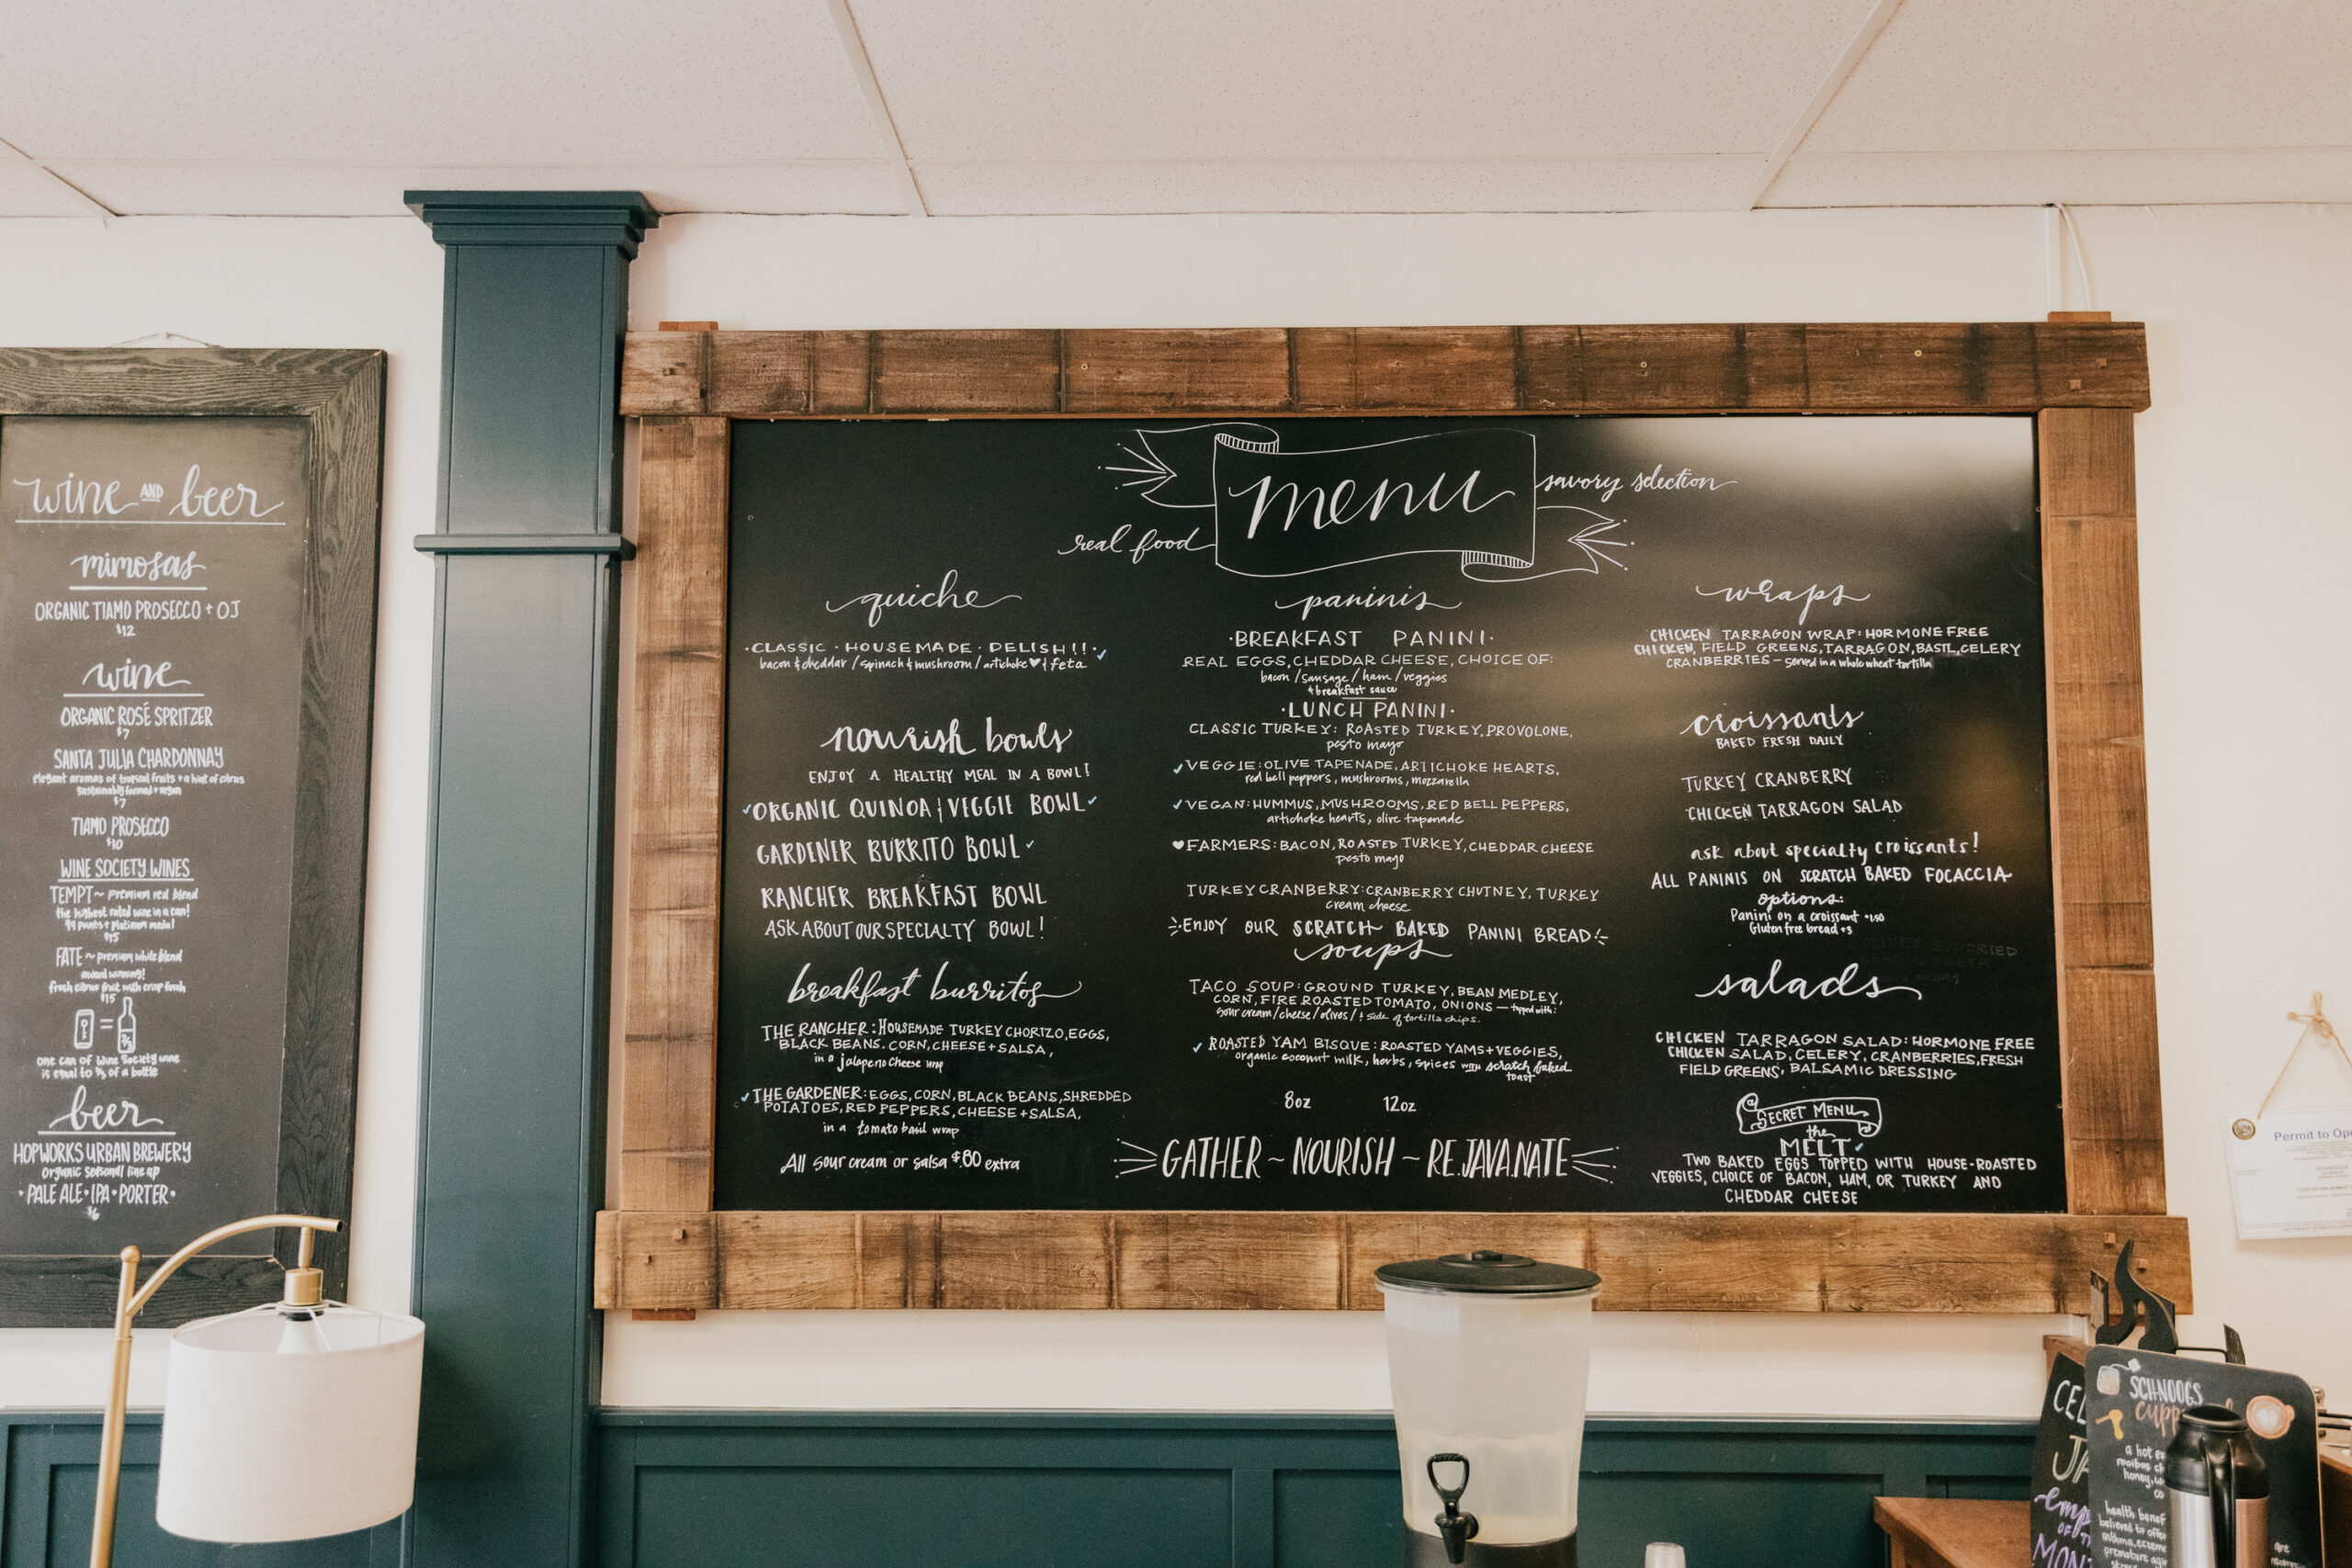 wine AND beer
mimosas
ORGANIC TIAMO PROSECCO + OJ
$12
wine
ORGANIC ROSÉ SPRITZER
$7
SANTA JULIA CHARDONNAY
elegant aromas of tropical fruits + a hint of citrus
sustainably farmed + vegan
$7
TIAMO PROSECCO
$10
WINE SOCIETY WINES
TEMPT ~ premium red blend
the highest rated wine in a can!
94 points + platinum medal
$15
FATE ~ premium white blend
award winning!
fresh citrus fruit with crisp finish
$15
=
one can of Wine Society wine
is equal to 2/3 of a bottle
beer
HOPWORKS URBAN BREWERY
organic seasonal line up
• PALE ALE • IPA • PORTER •
$6
menu
savory selection
real food
quiche
· CLASSIC · HOUSEMADE · DELISH!! · ✓
bacon & cheddar / spinach & mushroom / artichoke ♥ & feta
nourish bowls
ENJOY A HEALTHY MEAL IN A BOWL!
✓ ORGANIC QUINOA | VEGGIE BOWL ✓
GARDENER BURRITO BOWL ✓
RANCHER BREAKFAST BOWL
ASK ABOUT OUR SPECIALTY BOWL!
breakfast burritos
THE RANCHER: HOUSEMADE TURKEY CHORIZO, EGGS,
BLACK BEANS. CORN, CHEESE + SALSA,
in a jalapeno cheese wrap
✓ THE GARDENER: EGGS, CORN, BLACK BEANS, SHREDDED
POTATOES, RED PEPPERS, CHEESE + SALSA,
in a tomato basil wrap
All sour cream or salsa $.80 extra
paninis
· BREAKFAST PANINI ·
REAL EGGS, CHEDDAR CHEESE, CHOICE OF:
bacon / sausage / ham / veggies
+ breakfast sauce
· LUNCH PANINI ·
CLASSIC TURKEY: ROASTED TURKEY, PROVOLONE,
pesto mayo
✓ VEGGIE: OLIVE TAPENADE, ARTICHOKE HEARTS,
red bell peppers, mushrooms, mozzarella
✓ VEGAN: HUMMUS, MUSHROOMS, RED BELL PEPPERS,
artichoke hearts, olive tapenade
♥ FARMERS: BACON, ROASTED TURKEY, CHEDDAR CHEESE
pesto mayo
TURKEY CRANBERRY: CRANBERRY CHUTNEY, TURKEY
cream cheese
ENJOY OUR SCRATCH BAKED PANINI BREAD!
soups
TACO SOUP: GROUND TURKEY, BEAN MEDLEY,
CORN, FIRE ROASTED TOMATO, ONIONS — topped with:
sour cream / cheese / olives / & side of tortilla chips.
✓ ROASTED YAM BISQUE: ROASTED YAMS + VEGGIES,
organic coconut milk, herbs, spices with scratch baked
toast
8oz 12oz
GATHER ~ NOURISH ~ RE.JAVA.NATE
wraps
CHICKEN TARRAGON WRAP: HORMONE FREE
CHICKEN, FIELD GREENS, TARRAGON, BASIL, CELERY
CRANBERRIES — served in a whole wheat tortilla
croissants
BAKED FRESH DAILY
TURKEY CRANBERRY
CHICKEN TARRAGON SALAD
ask about specialty croissants!
ALL PANINIS ON SCRATCH BAKED FOCACCIA
options:
Panini on a croissant +1.50
Gluten free bread +3
salads
CHICKEN TARRAGON SALAD: HORMONE FREE
CHICKEN SALAD, CELERY, CRANBERRIES, FRESH
FIELD GREENS, BALSAMIC DRESSING
SECRET MENU
the
MELT ✓
TWO BAKED EGGS TOPPED WITH HOUSE-ROASTED
VEGGIES, CHOICE OF BACON, HAM, OR TURKEY AND
CHEDDAR CHEESE
Permit to Ope
CEL
JA
OF
MON
SCHNOOGS
cupp
a hot
rooibos
honey,
health benef
believed to offer
asthma, eczema
premature
are